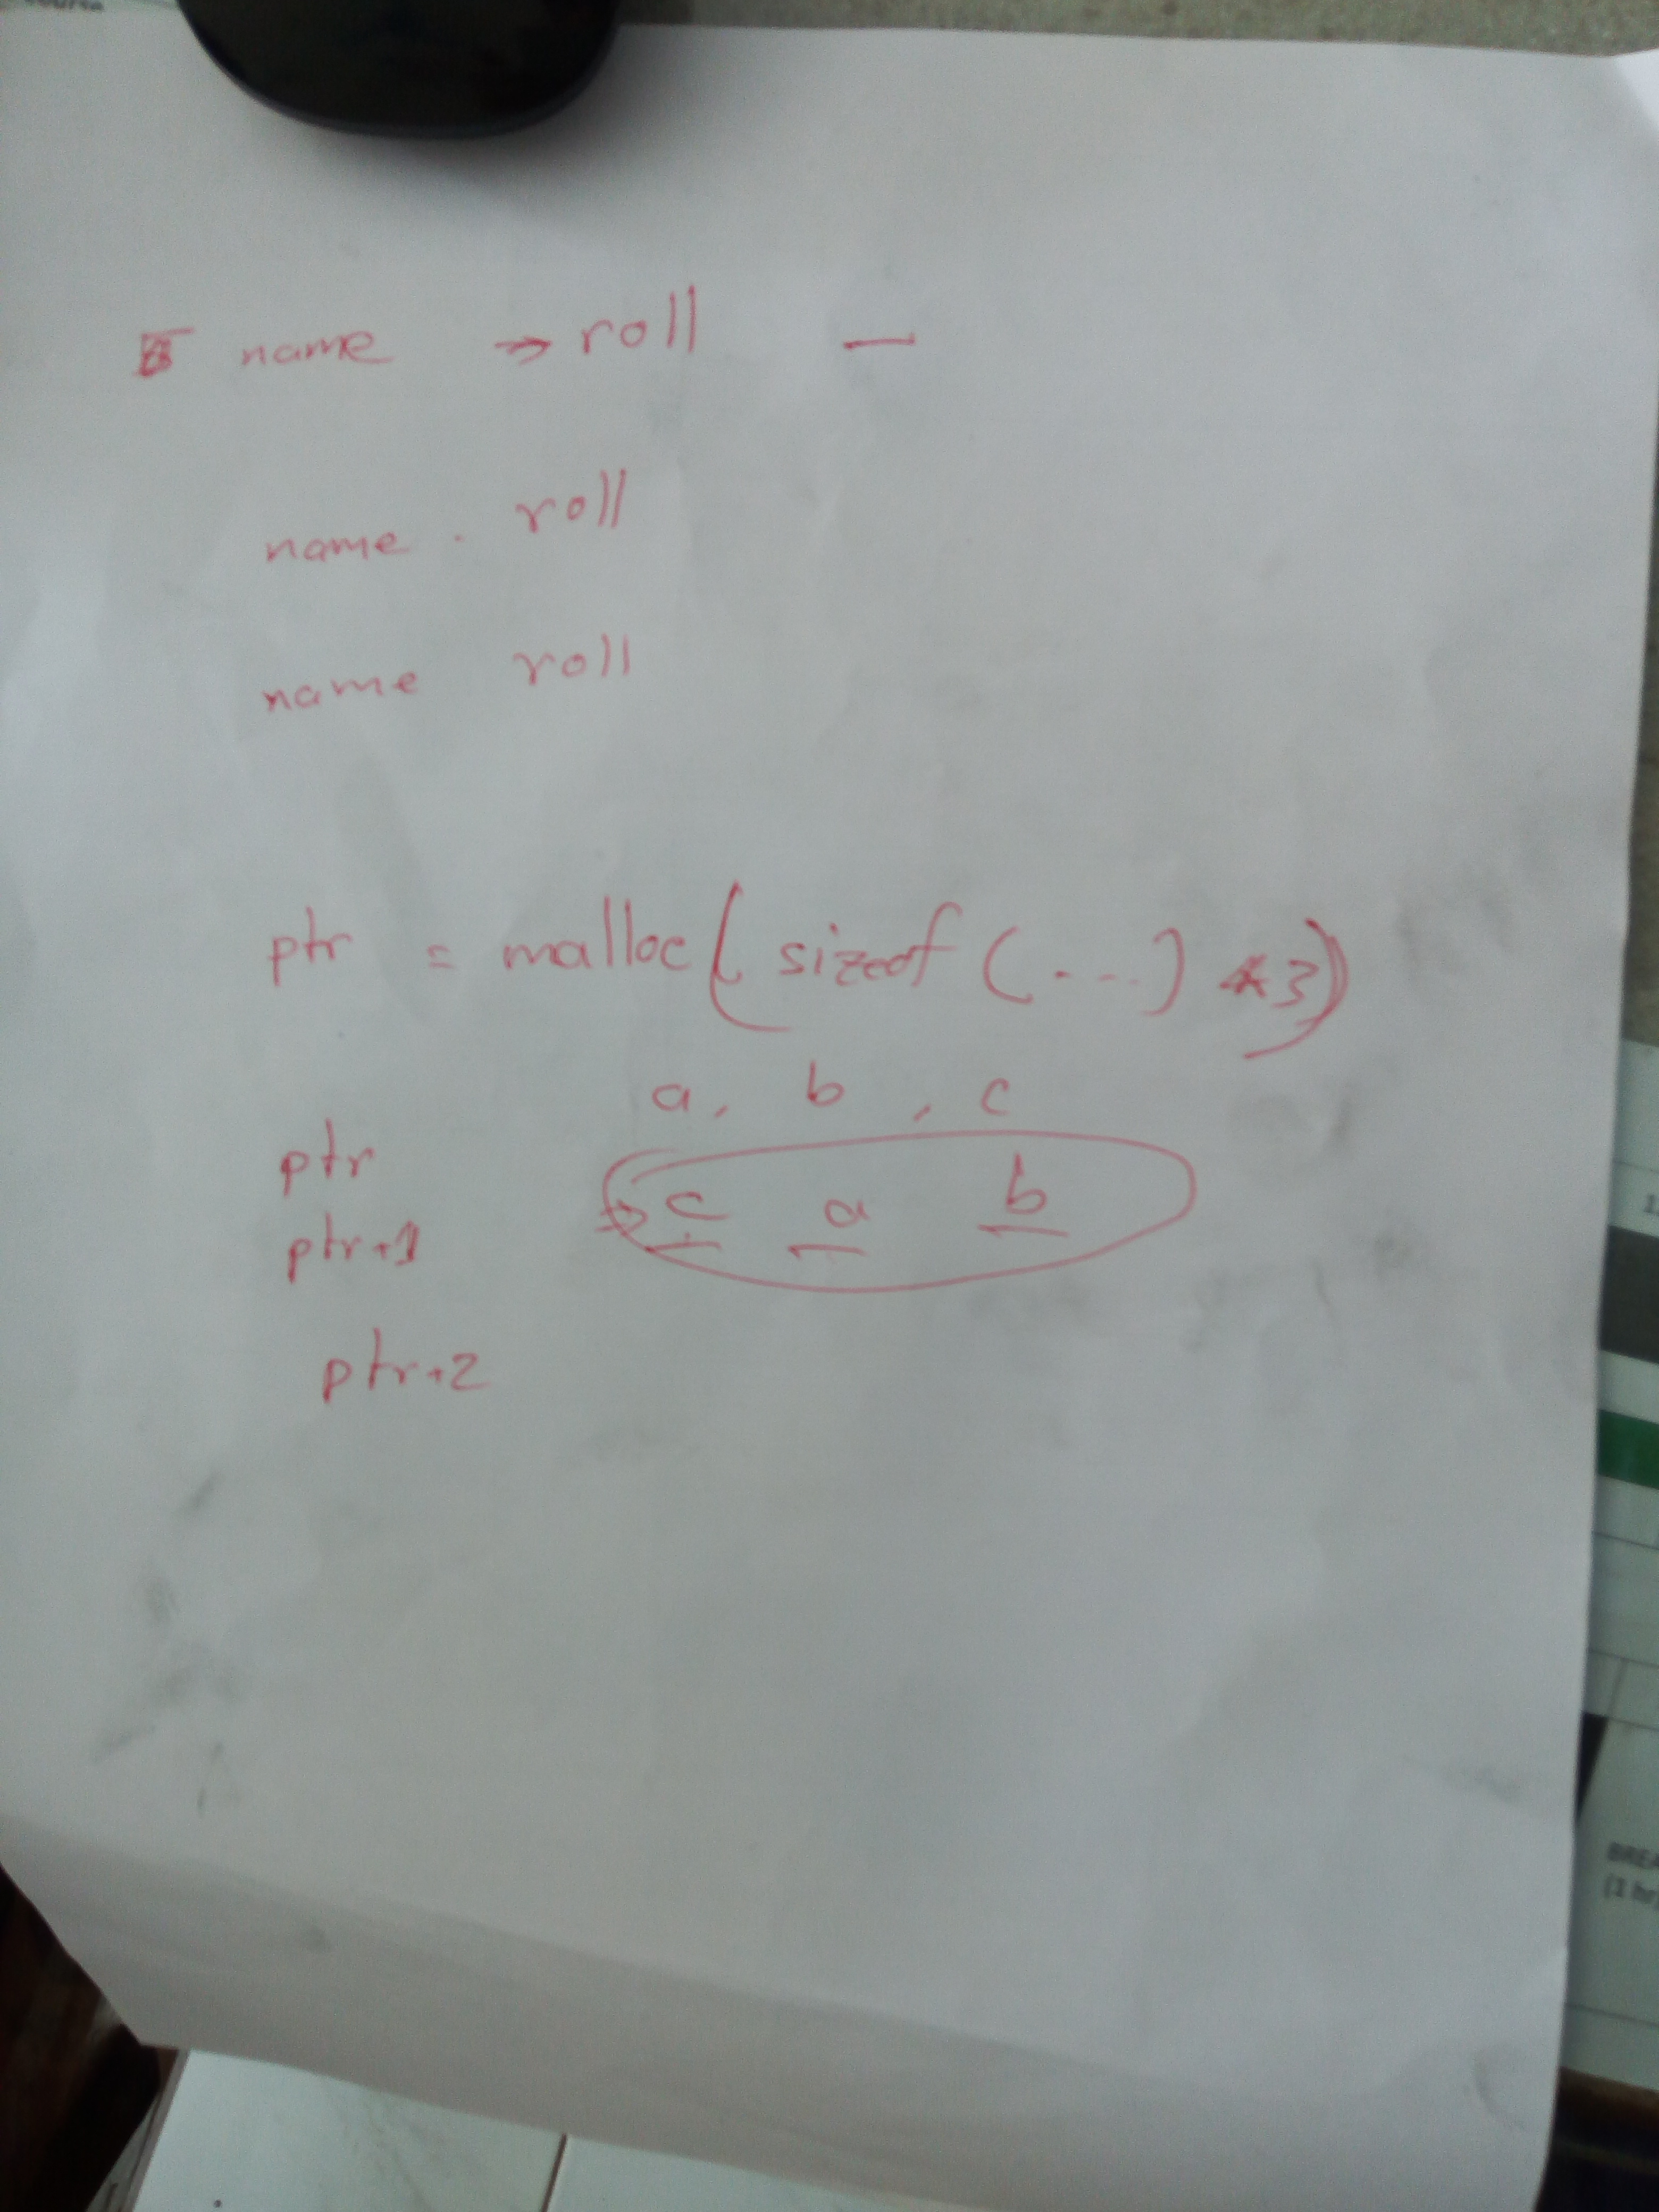 name → roll —
name . roll
name roll
ptr = malloc( sizeof (...) *3)
a, b, c
ptr
→ c a b
ptr+1
ptr+2
BREA
(1 hr